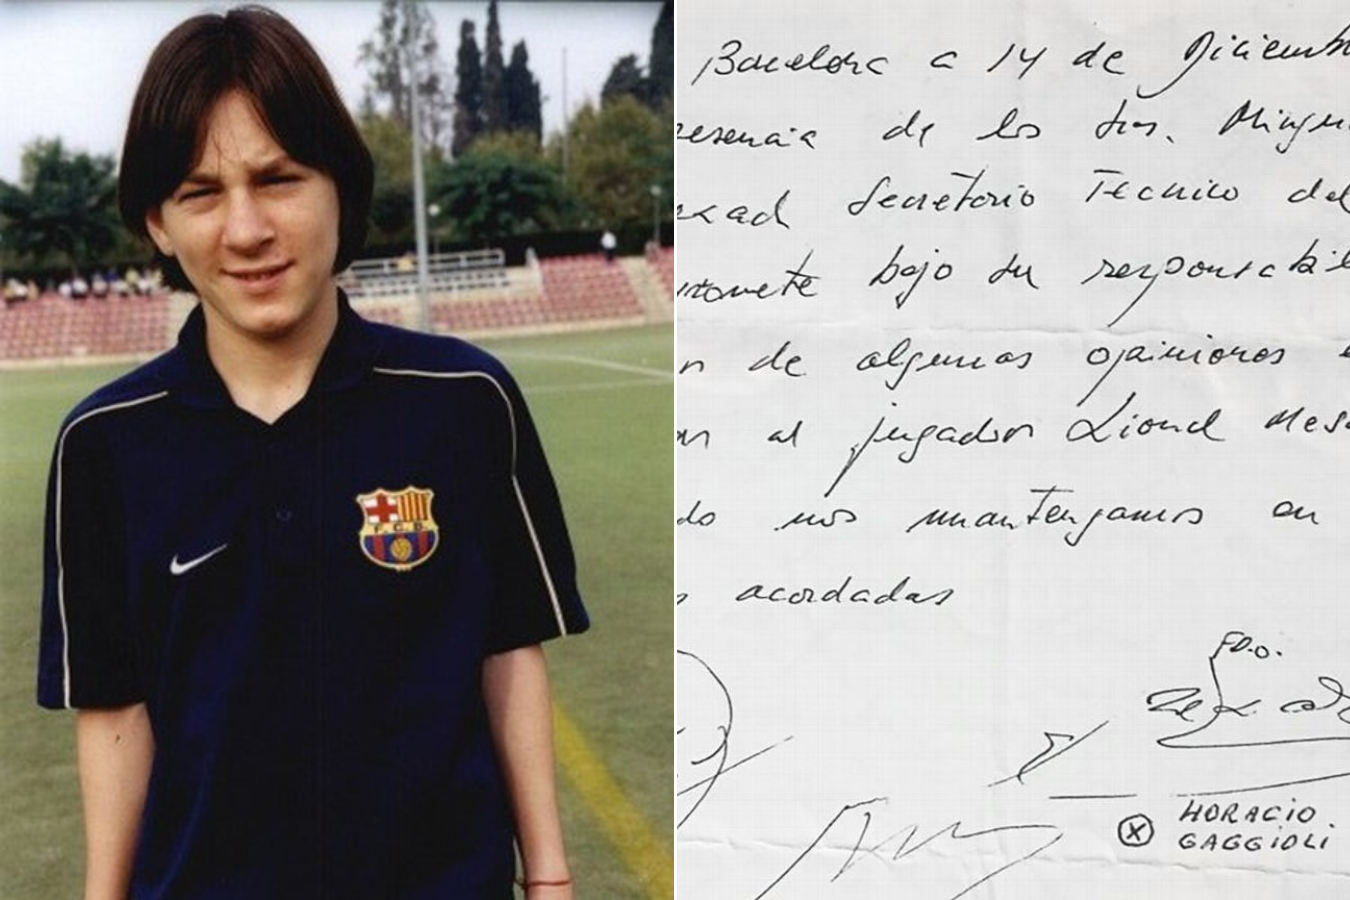 F C B
Barcelona a 14 de Diciemb
resencia de los Srs. Mingu
exad Secretario Tecnico del
romete bajo su responsabil
n de algunas opiniones e
an al jugador Lionel Mess
do nos mantengamos en
s acordadas
FDO.
HORACIO
GAGGIOLI